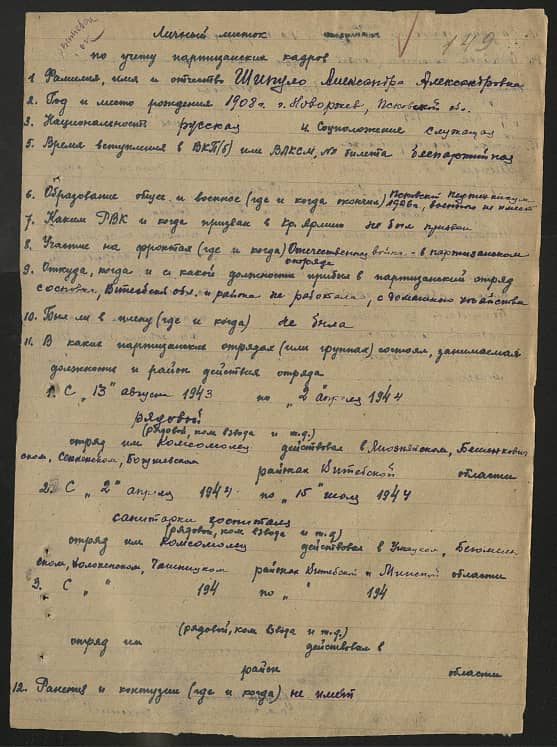 149
Личный листок
по учету партизанских кадров
1. Фамилия, имя и отчество Шипуло Александра Александровна
2. Год и место рождения 1908 г. г. Новоржев, Псковской об.
3. Национальность русская 4. Соцположение служащая
5. Время вступления в ВКП(б) или ВЛКСМ, № билета беспартийная
6. Образование общее и военное (где и когда окончил) Псковский педтехникум
1926 г., военного не имеет
7. Каким РВК и когда призван в Кр. армию не был призван
8. Участие на фронтах (где и когда) Отечественная война - в партизанском
отряде
9. Откуда, когда и с какой должности прибыл в партизанский отряд
Витебская обл. и района не работала, с домашнего хозяйства
10. Был ли в плену (где и когда) не была
11. В каких партизанских отрядах (или группах) состоял, занимаемая
должность и район действия отряда
1. С "13" августа 1943 по "2" апреля 1944
рядовой
(рядовой, ком. взвода и т.д.)
отряд им Комсомолец действовал в Лиозненском, Бешенкович
ском, Сенненском, Богушевском
районах Витебской области
2. С "2" апреля 1944 по "15" июля 1944
санитарки госпиталя
(рядовой, ком взвода и т.д.)
отряд им Комсомолец действовал в Ушацком, Бегомль
ском, Чашницком районах Витебской и Минской области
3. С " " 194 по " " 194
(рядовой, ком взвода и т.д.)
отряд им действовал в
район области
12. Ранения и контузии (где и когда) не имеет